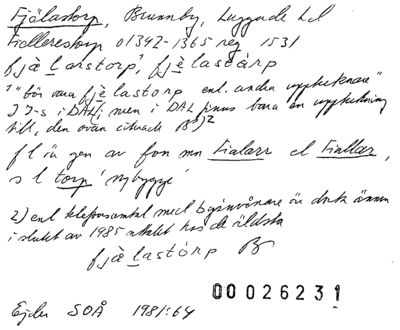 Fjälastorp, Brunnby, Luggude hd
Fiallerestorp 01342-1365 reg 1531
fjælarstorp¹, fjælastårp
¹ "bör vara fjælastorp enl. andre upptecknare"
I J-s i DAL; men i DAL finns bara en uppteckning
till, den ovan citerade B³)²
f l är gen av fvn mn Fialarr el Fiallar,
s l torp 'nybygge'
2) enl telefonsamtal med
i slutet av 1985 uttalet hos de äldsta
fjælastårp B
00026231
Ejder SOÅ 1981:64